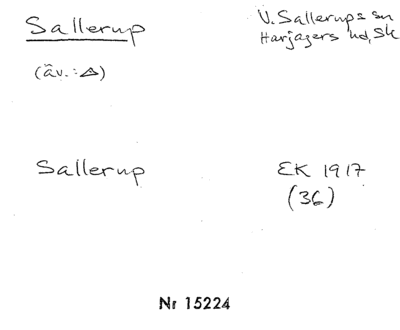 Sallerup
V. Sallerups sn
Harjagers hd, Sk
(äv.: △)
Sallerup
EK 1917
(36)
Nr 15224